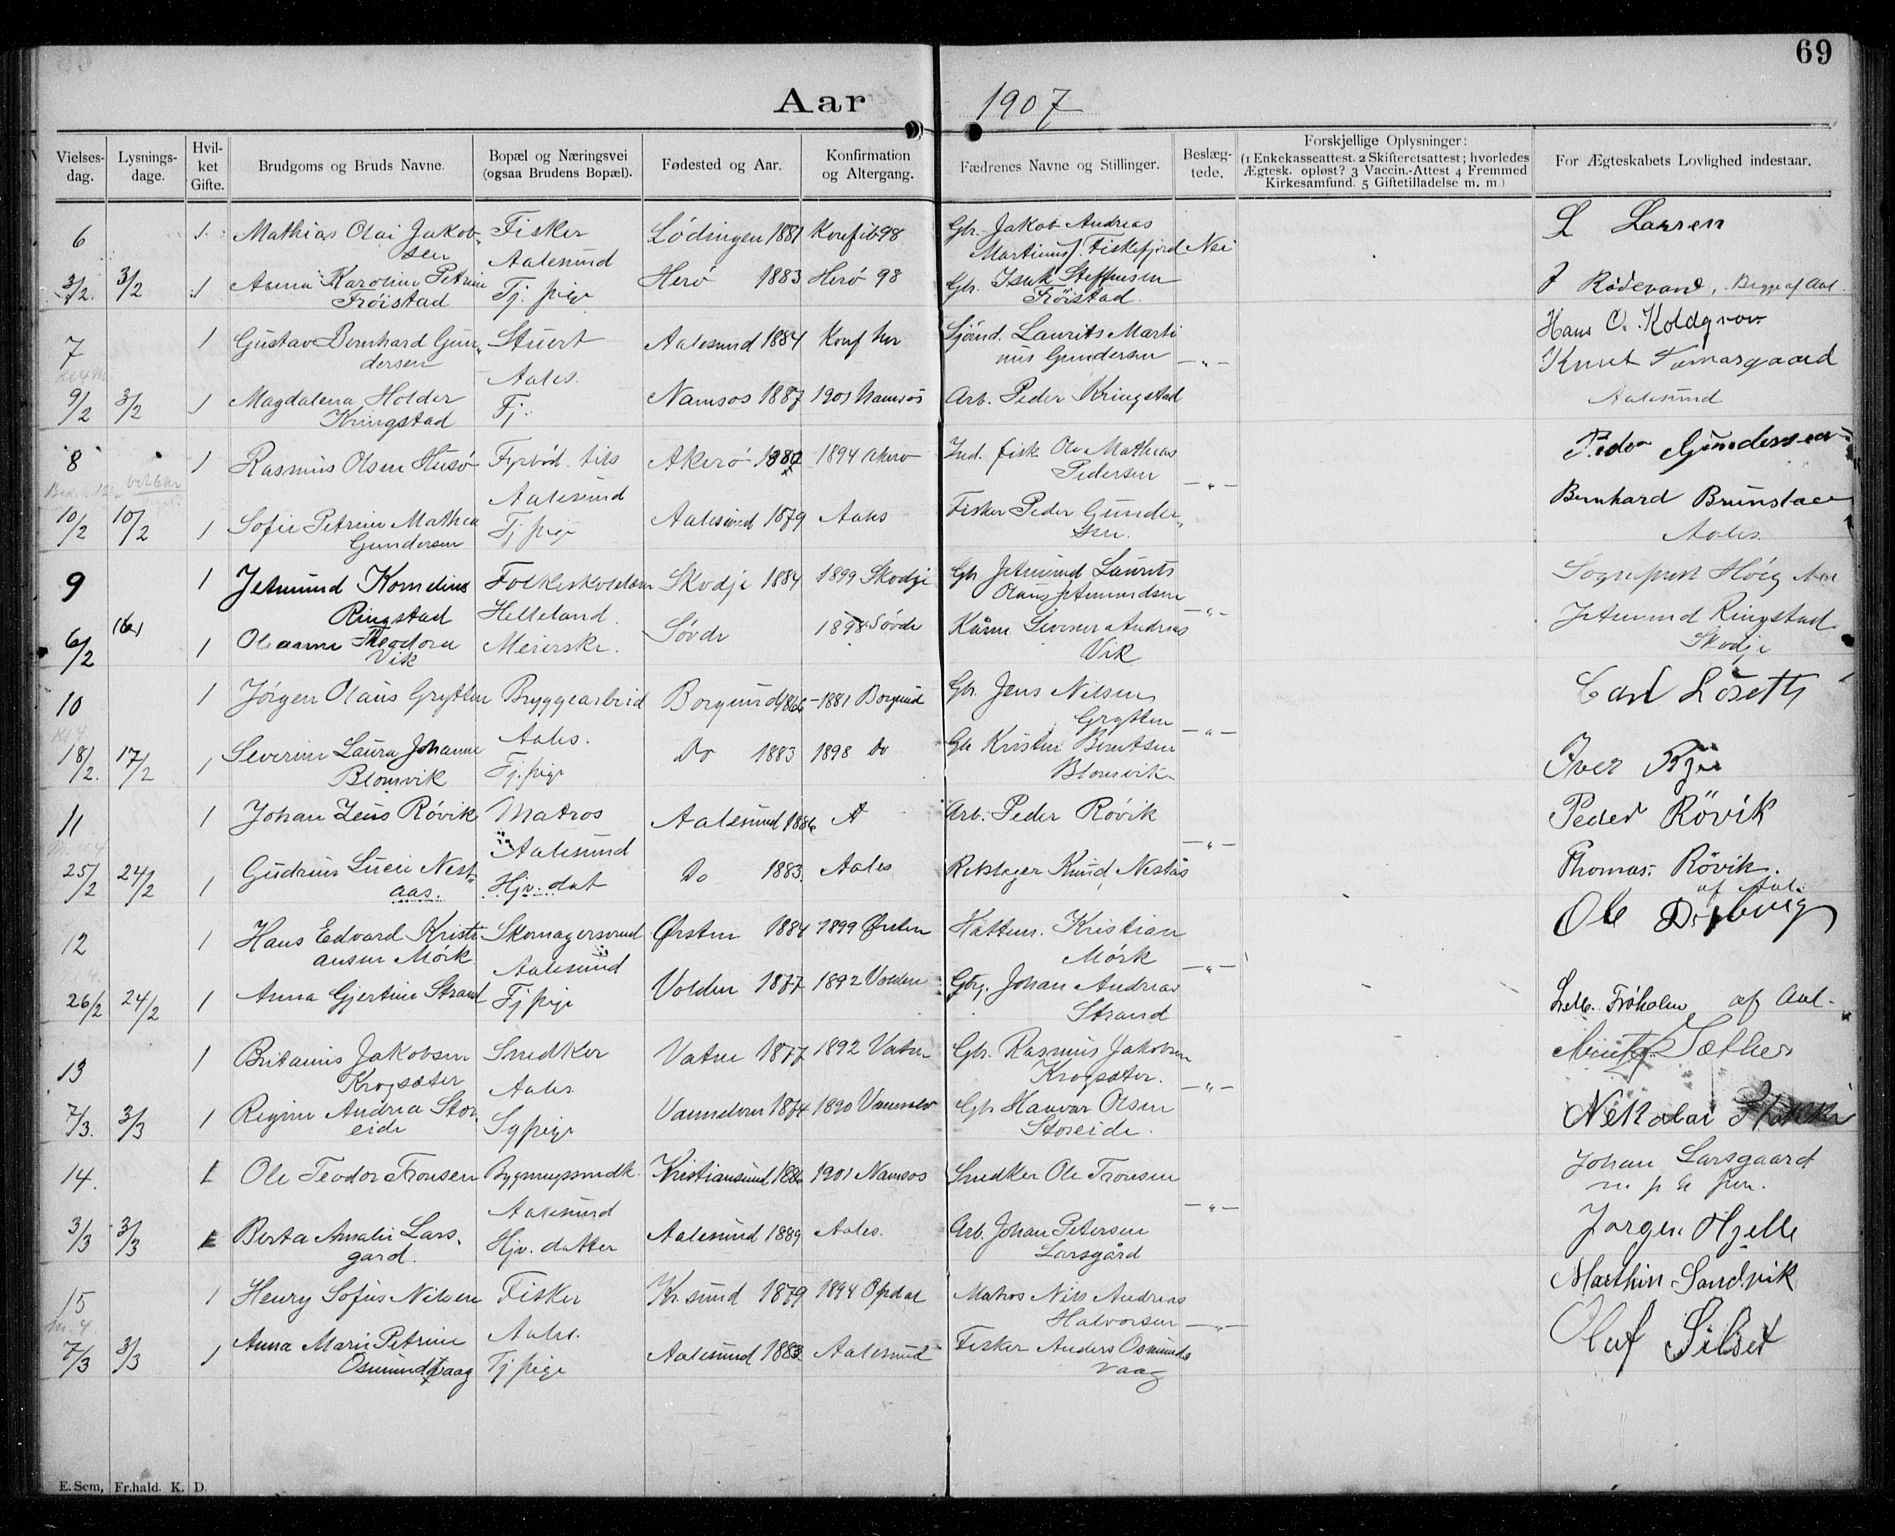 69
Aar 1907
Vielses-dag. Lysnings-dage. Hvil-ket Gifte. Brudgoms og Bruds Navne. Bopæl og Næringsvei (ogsaa Brudens Bopæl). Fødested og Aar. Konfirmation og Altergang. Fædrenes Navne og Stillinger. Beslæg-tede. Forskjellige Oplysninger: (1 Enkekasseattest. 2 Skifteretsattest; hvorledes Ægtesk. opløst? 3 Vaccin.-Attest 4 Fremmed Kirkesamfund. 5 Giftetilladelse m. m.) For Ægteskabets Lovlighed indestaar.
6 1. Mathias Olai Jakob- Fisker Lødingen 1881 Gbr. Jakob Andreas L Larsen
sen Aalesund Fiskefjord Nei
3/2. 3/2 1 Anna Karoline Petrine Tj. pige Herø 1883 Herø 98 Gbr. Isak Steffensen J Rødevand, Begge af Aal.
Frøistad Frøistad.
7 1 Gustav Bernhard Gun- Stuert Aalesund 1884 Konf her Sjømd. Laurits Marti Hans O. Koldgrov
dersen Aales. nus Gundersen -"- Knut
9/2 3/2 1 Magdalena Holder Tj. Namsos 1887 1901 Namsos Arb. Peder Kringstad Aalesund
Kringstad
8 1 Rasmus Olsen Husø Fyrbød. Akerø 1882 1894 Akerø Ind. fisk Ole Mathias Peder Gundersen
Aalesund Pedersen -"- Bernhard
10/2 10/2 1 Sofie Petrine Mathea Tj. pige Aalesund 1879 Aales Fisker Peder Gunder- Aales.
Gundersen sen.
9 1 Jetmund Kornelius Folkeskolelær Skodje 1884 1899 Skodje Gbr Jetmund Laurits Sogneprest Høeg Aal
Ringstad Helleland. Olaus Jetmundsen -"- Jetmund Ringstad
6/2 1 Oleanna Theodora Meierske. Søvde 1898 Søvde Kårm. Andreas Skodje
Vik Vik
10 1 Jørgen Olaus Grytten Bryggearbeid Borgund 1866 -1881 Borgund Gbr. Jens Nilsen Carl Løseth
Aales. Grytten -"-
18/2. 17/2 1 Severine Laura Johanne Tj. pige Do 1883 1898 Do Gbr Kristen Berntsen Iver
Blomvik Blomvik
11 1 Johan Zeus Røvik Matros Aalesund 1886 A Arb. Peder Røvik Peder Røvik
Aalesund -"-
25/2 24/2 1 Gudrun Lucie Nest- Hjv. dat Do 1883. Aales Rebslager Knud Nestås Thomas Røvik.
aas. af Aal.
12 1 Hans Edvard Kristi Skomagersvend Ørsten 1884 1899 Ørsten Hattem. Kristian Ole
ansen Mørk Aalesund Mørk -"-
26/2 24/2 1 Anna Gjertine Strand Tj pige Volden 1877 1892 Volden Gbrg. Johan Andreas Frøholm af Aal-
Strand
13 1 Britanus Jakobsen Snedker Vatne 1877 1892 Vatne Gbr. Rasmus Jakobsen Sæther
Krogsæter Aales. Krogsæter. -"-
7/3. 3/3 1 Regine Andrea Stor Sypige Vannelven 1874 1890 Gbr Haavar Olsen Nekolai
eide Storeide.
14. 1 Ole Teodor Tronsen Bygningssnedk. Kristiansund 1886 1901 Namsos Snedker Ole Tronsen Johan Larsgaard
Aalesund -"- m p h pen.
3/3 3/3 1 Berta Amalie Lars- Hjv. datter Aalesund 1889 Aales. Arb. Johan Petersen Jørgen Hjelle
gard. Larsgård
15 1 Henry Sofus Nilsen Fisker Kr. sund 1879 1894 Opdal Matros Nils Andreas Marthin Sandvik
Aales. Halvorsen -"-
7/3 3/3 1 Anna Marie Petrine Tj pige Aalesund 1883 Aalesund Fisker Anders Osmunds Olaf Silset
Osmundvaag vaag
E. Sem, Fr.hald. K. D.